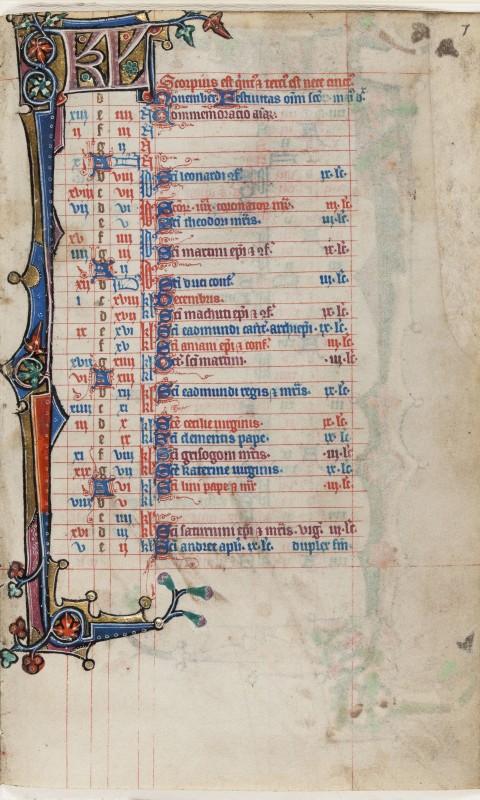 7
KL
Scorpius est q̇nt᷒ ⁊ terci᷒ est nece cinct᷒
d Nouember Festiuitas oīm scōꝝ
xiii e iiii N Commemoracio aīaꝝ.
ii f iii N
g ii N
x A N
b viii Id Sc̄i leonardi ꝯf.
xviii c vii Id
vii d vi Id Scōꝝ. iiii. coronatoꝝ mr̄. iii. lc̄.
e v Id Sc̄i theodori mr̄is. iii. lc̄.
xv f iiii Id
iiii g iii Id Sc̄i martini ep̄i ⁊ ꝯf. ix. lc̄.
A ii Id
xii b Id Sc̄i bricii conf. iii. lc̄.
i c xviii kl Decembris.
d xvii kl Sc̄i machuti ep̄i ⁊ ꝯf. ix. lc̄.
ix e xvi kl Sc̄i eadmundi cant̄. archiep̄i. ix. lc̄.
f xv kl Sc̄i aniani ep̄i ⁊ conf. iii. lc̄.
xvii g xiiii kl Oct̄. sc̄i martini. iii. lc̄.
vi A xiii kl
b xii kl Sc̄i eadmundi regis ⁊ mr̄is. ix. lc̄.
xiiii c xi kl
iii d x kl Sc̄e cecilie uirginis. ix. lc̄.
e ix kl Sc̄i clementis pape. ix. lc̄.
xi f viii kl Sc̄i grisogom mr̄is. iii. lc̄.
xix g vii kl Sc̄e katerine uirginis. ix. lc̄.
A vi kl Sc̄i lini pape ⁊ mr̄. iii. lc̄.
viii b v kl
c iiii kl
xvi d iii kl Sc̄i saturnini ep̄i ⁊ mr̄is. vig̓. iii. lc̄.
v e ii kl Sc̄i andree apl̄i. ix. lc̄. duplex